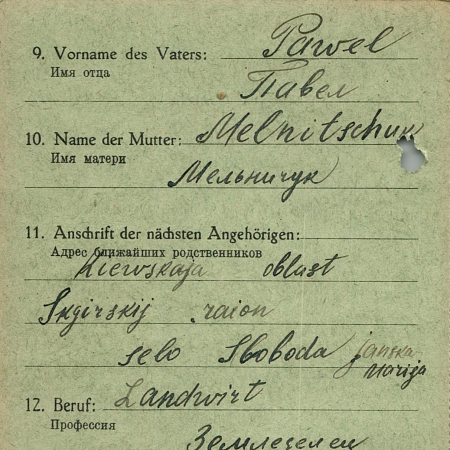 9. Vorname des Vaters: Pawel
Имя отца
Павел
10. Name der Mutter: Melnitschuk
Имя матери
Мельничук
11. Anschrift der nächsten Angehörigen:
Адрес ближайших родственников
Kiewskaja oblast
Skwirskij raion
selo Sloboda
Marija
12. Beruf: Landwirt
Профессия
Земледелец